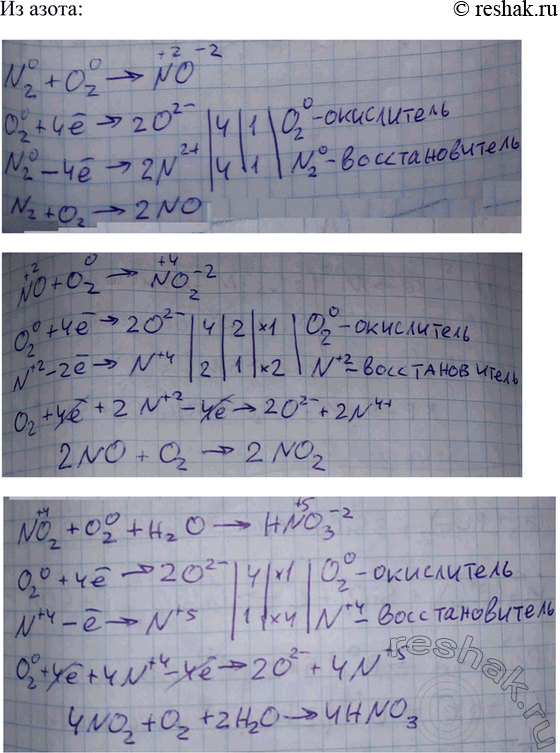 Из азота: © reshak.ru
N₂⁰ + O₂⁰ → N⁺²O⁻²
O₂⁰ + 4ē → 2O²⁻ | 4 | 1 | O₂⁰ - окислитель
N₂⁰ - 4ē → 2N²⁺ | 4 | 1 | N₂⁰ - восстановитель
N₂ + O₂ → 2NO
N⁺²O + O₂⁰ → N⁺⁴O₂⁻²
O₂⁰ + 4ē → 2O²⁻ | 4 | 2 | ×1 | O₂⁰ - окислитель
N⁺² - 2ē → N⁺⁴ | 2 | 1 | ×2 | N⁺² - восстановитель
O₂ + 4ē + 2N⁺² - 4ē → 2O²⁻ + 2N⁴⁺
2NO + O₂ → 2NO₂
N⁺⁴O₂ + O₂⁰ + H₂O → HN⁺⁵O₃⁻²
O₂⁰ + 4ē → 2O²⁻ | 4 | ×1 | O₂⁰ - окислитель
N⁺⁴ - ē → N⁺⁵ | 1 | ×4 | N⁺⁴ - восстановитель
O₂⁰ + 4ē + 4N⁺⁴ - 4ē → 2O²⁻ + 4N⁺⁵
4NO₂ + O₂ + 2H₂O → 4HNO₃
reshak.ru